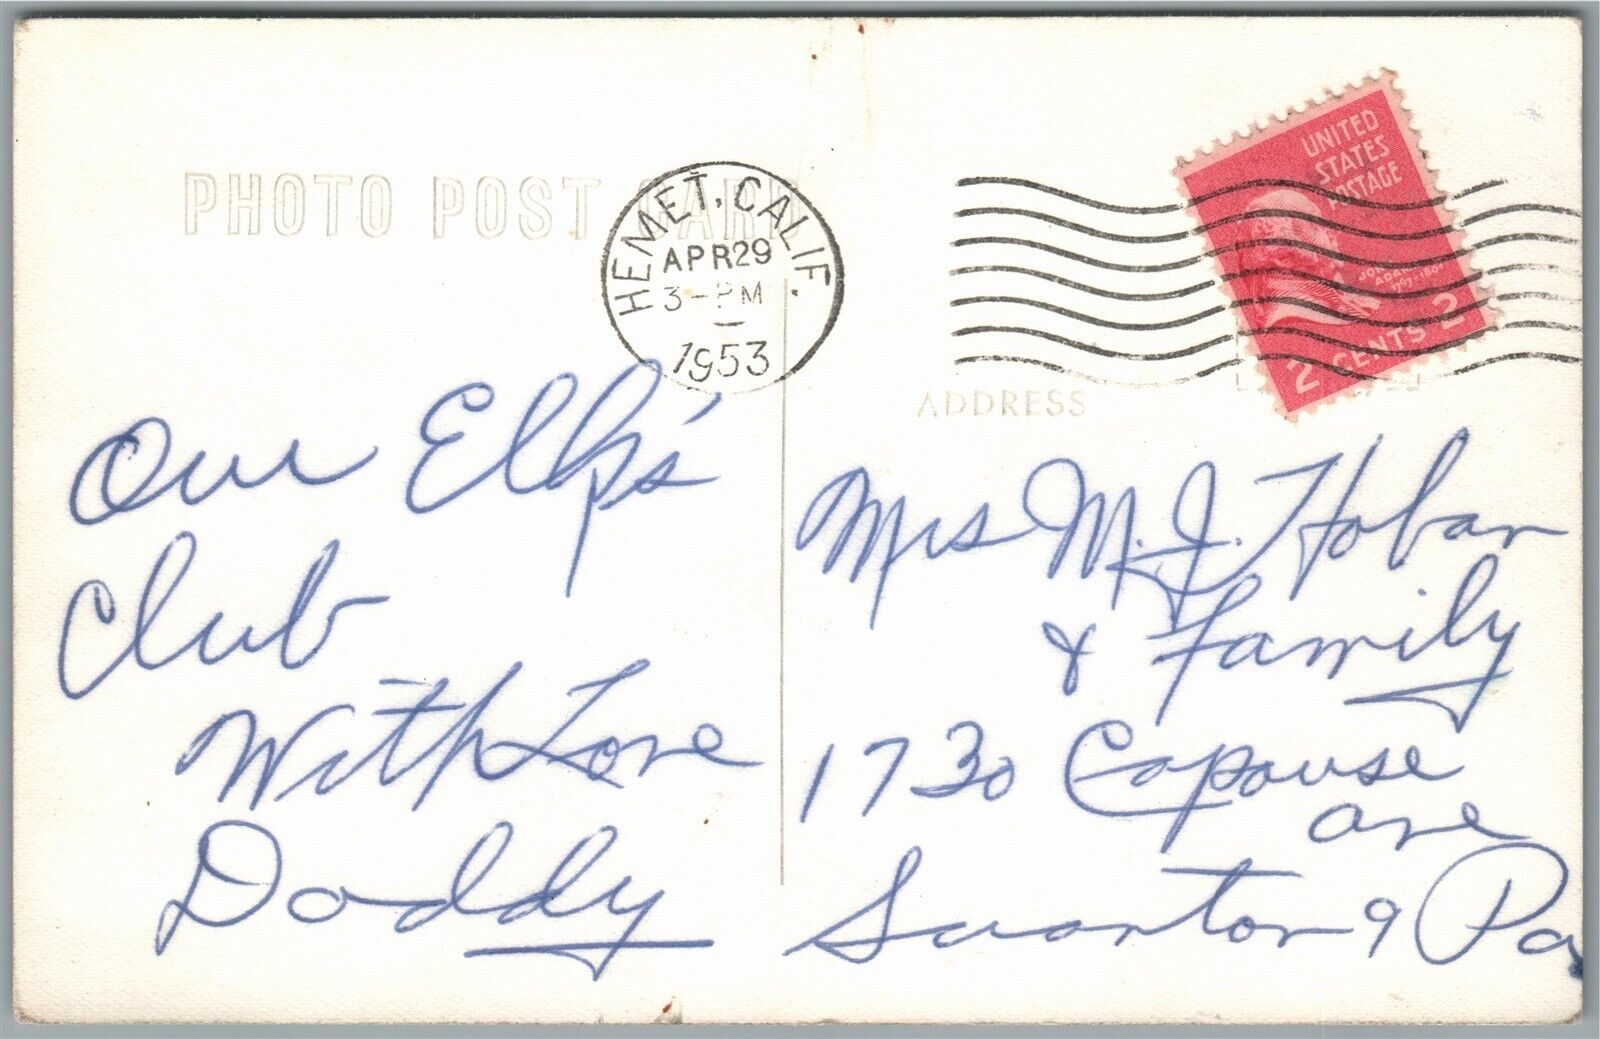 PHOTO POST CARD
HEMET, CALIF.
APR 29
3-PM
1953
UNITED
STATES
POSTAGE
2 CENTS 2
ADDRESS
Our Elks'
Club
With Love
Daddy
Mrs M. J. Hoban
& Family
1730 Capouse
ave
Scranton 9 Pa